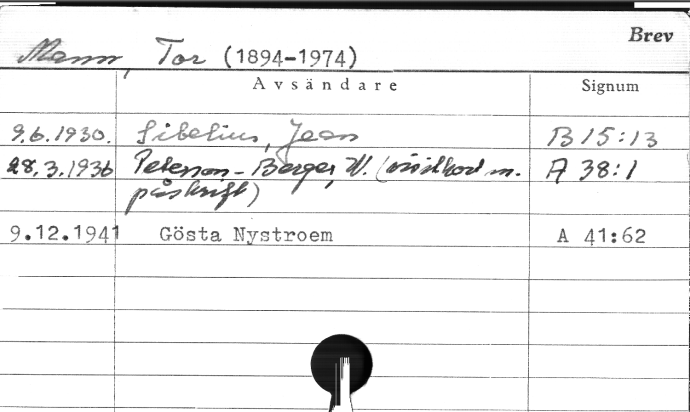 Brev
Mann, Tor (1894-1974)
Avsändare Signum
9.6.1930. Sibelius, Jean B 15:13
28.3.1936 Peterson-Berger, W. (visitkort m. A 38:1
påskrift)
9.12.1941 Gösta Nystroem A 41:62